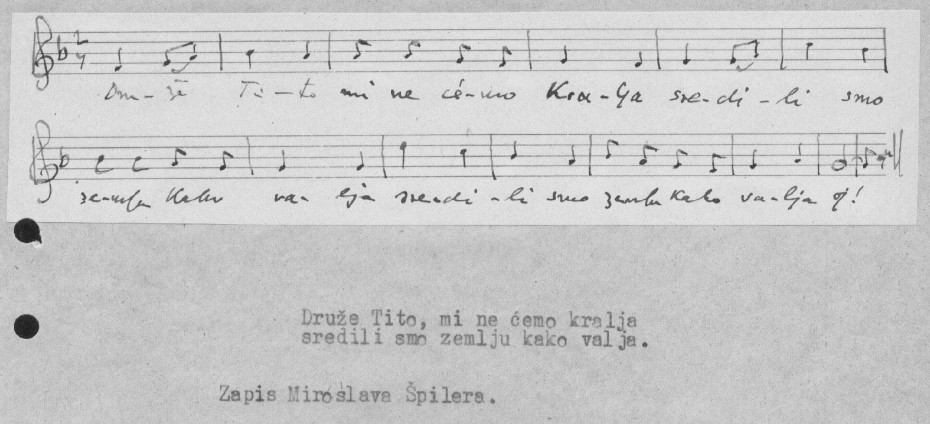 Dru-že Ti-to mi ne će-mo Kra-lja sre-di-li smo
ze-mlju Kako va-lja sre-di-li smo zemlju Kako va-lja oj!
Druže Tito, mi ne ćemo kralja
sredili smo zemlju kako valja.
Zapis Miroslava Špilera.